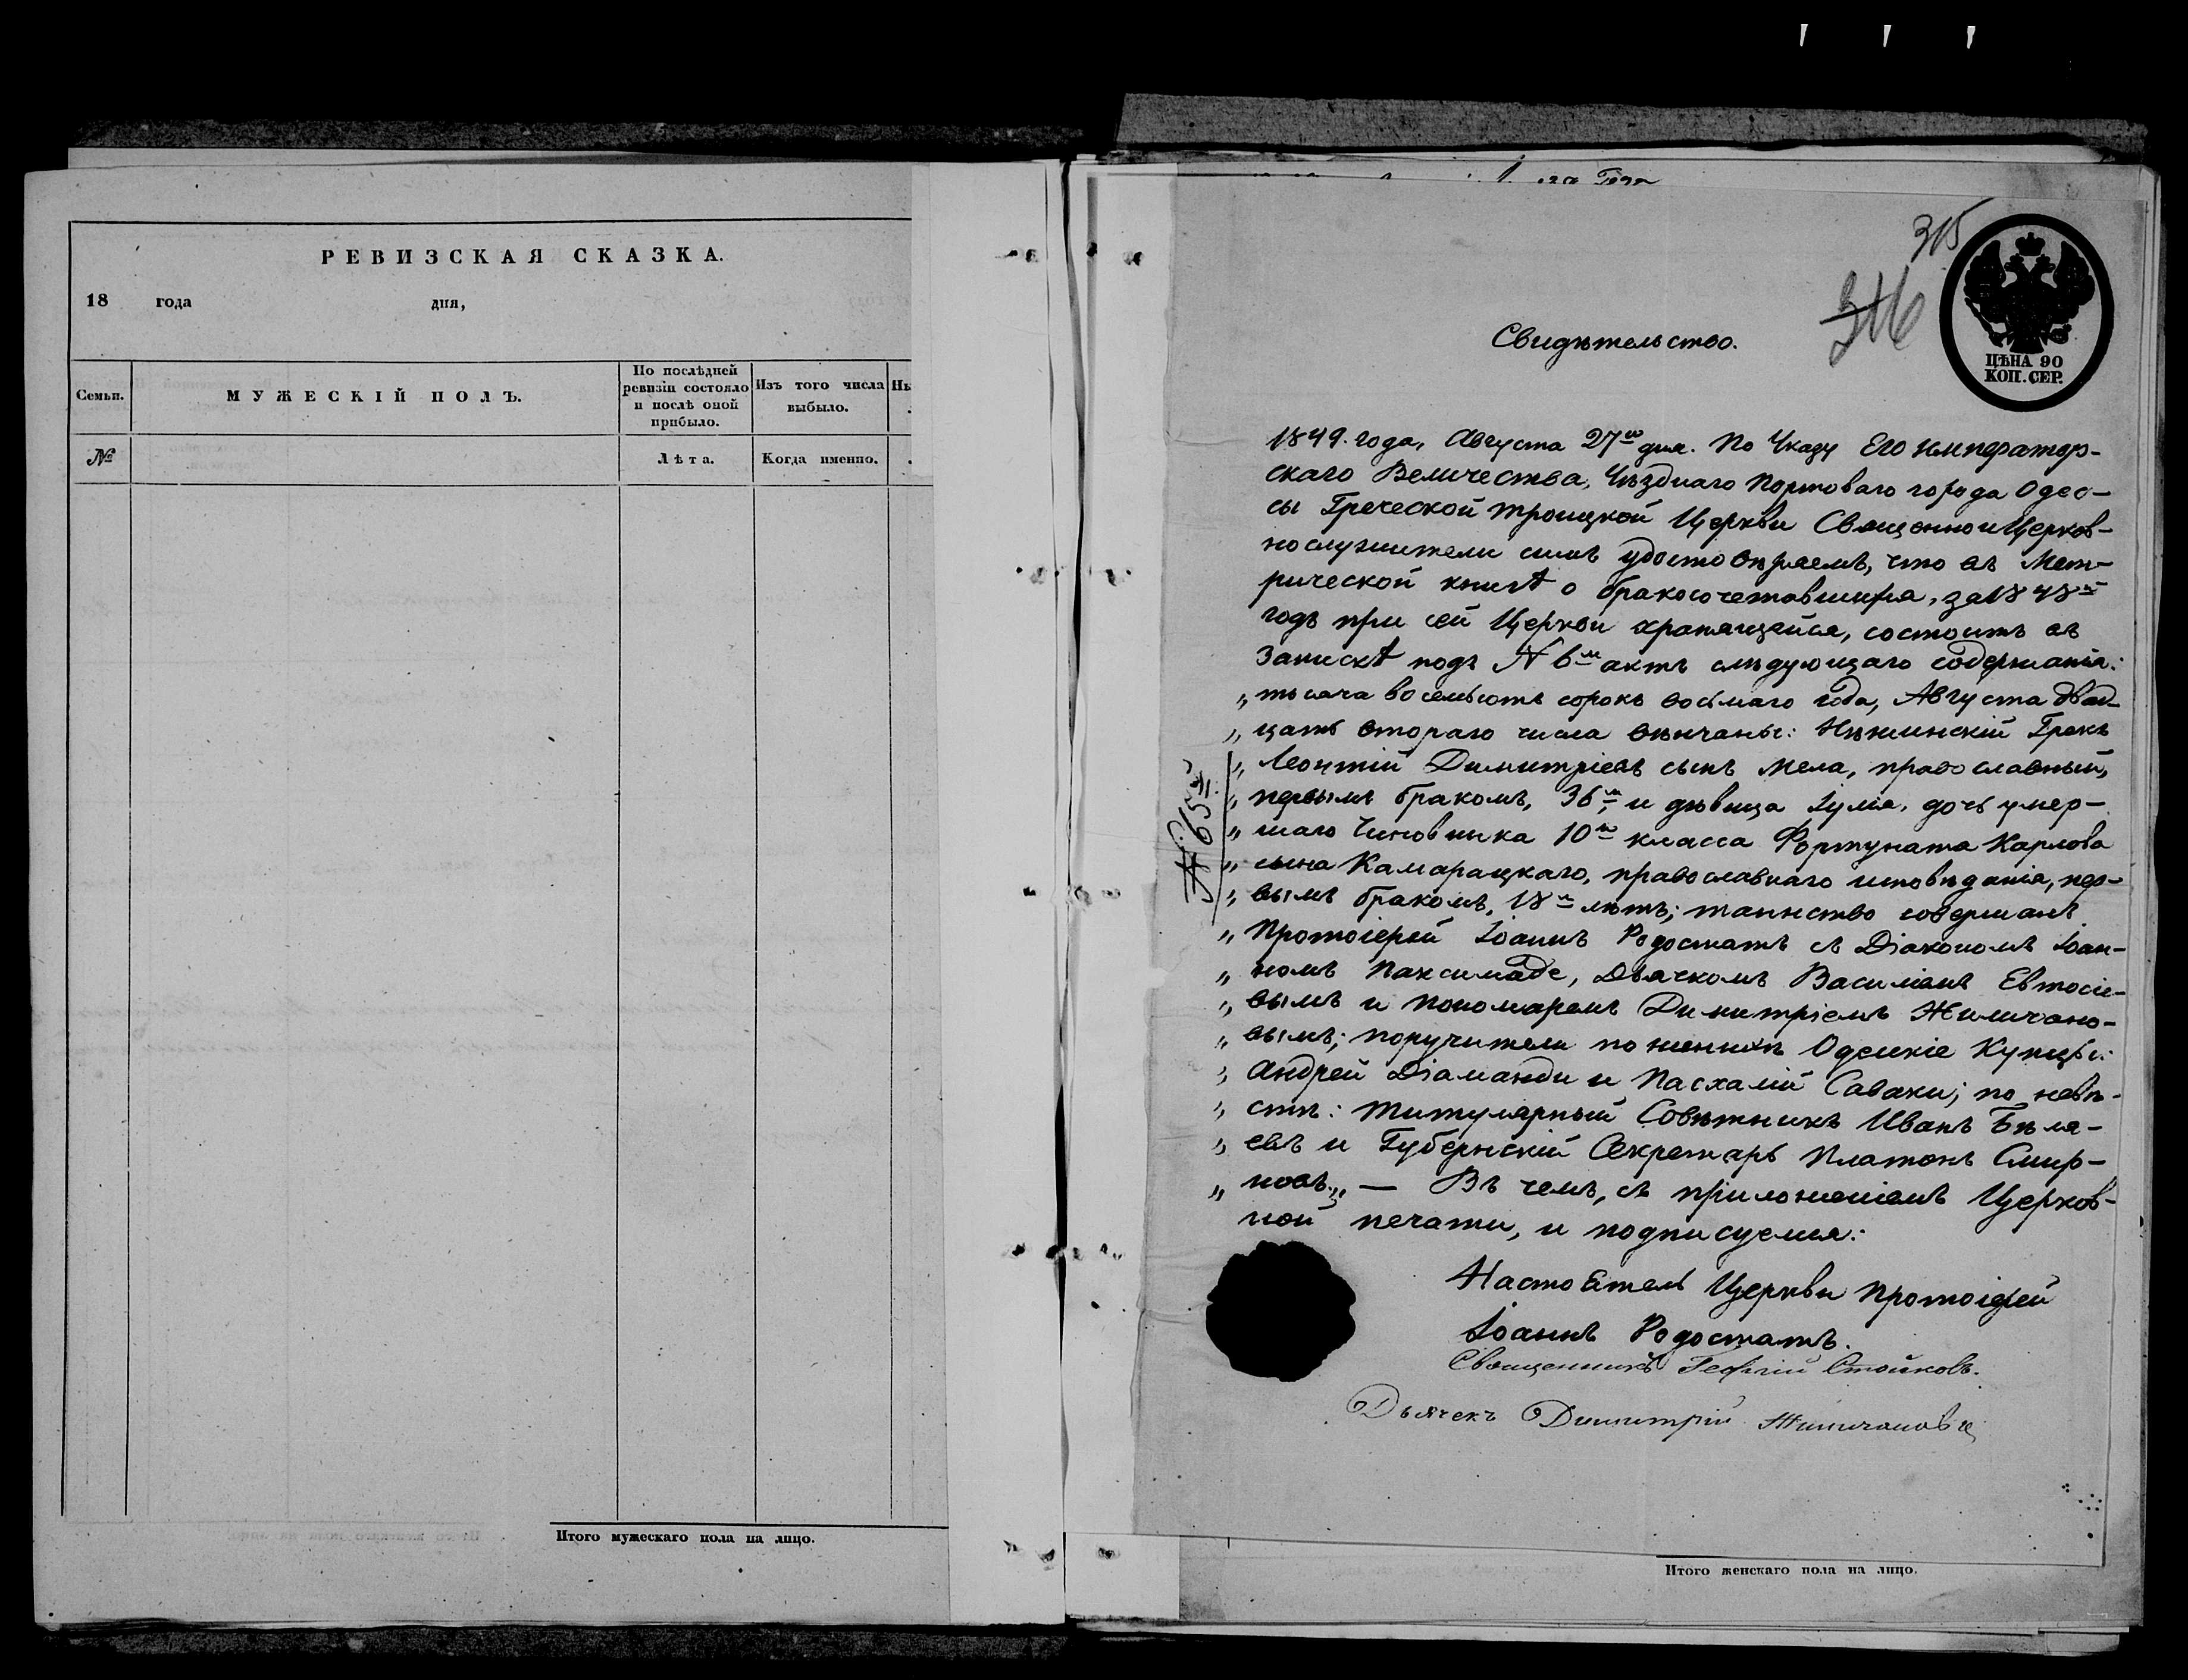 РЕВИЗСКАЯ СКАЗКА.
18 года дня,
Семьи.
МУЖЕСКІЙ ПОЛЪ.
По послѣдней ревизіи состояло и послѣ оной прибыло.
Изъ того числа выбыло.
Нын
№
Лѣта.
Когда именно.
Итого мужескаго пола на лицо.
315
316
ЦѢНА 90
КОП. СЕР.
Свидѣтельство.
1849. года, Августа 27го дня. По Указу Его Император-
скаго Величества, Уѣзднаго Портоваго города Одес-
сы Греческой Троицкой Церкви Священно и Церков-
нослужители симъ удостовѣряемъ, что въ Мет-
рической книгѣ о бракосочетавшихся, за 1848й
годъ при сей Церкви хранящейся, состоитъ въ
Запискѣ подъ № 6м актъ слѣдующаго содержанія:
„ тысяча восемьсотъ сорокъ восьмаго года, Августа двад-
„ цать втораго числа вѣнчаны: Нѣжинскій Грекъ
„ Леонтій Димитріевъ сынъ Мела, православный,
„ первымъ бракомъ, 36ти и дѣвица Іулія, дочь умер-
„ шаго Чиновника 10го класса Фортуната Карлова
„ сына Камарацкаго, православнаго исповѣданія, пер-
„ вымъ бракомъ, 18ти лѣтъ; таинство совершалъ
„ Протоіерей Іоаннъ Родостатъ съ Діакономъ Іоан-
„ номъ Паксимаде, Дьячкомъ Василіемъ Евтосіе-
„ вымъ и пономаремъ Димитріемъ Жиличано-
„ вымъ; поручители по женихѣ Одесскіе Купцы:
„ Андрей Діаманди и Пасхалій Саваки; по невѣ-
„ стѣ: Титулярный Совѣтникъ Иванъ Бѣля-
„ евъ и Губернскій Секретарь Платонъ Смир-
„ новъ.„ — Въ чемъ, съ приложеніемъ Церков-
ной печати, и подписуемся:
№ 65й
Настоятель Церкви Протоіерей
Іоаннъ Родостатъ.
Священникъ Георгій Стойковъ.
Дьячекъ Димитрій
Итого женскаго пола на лицо.